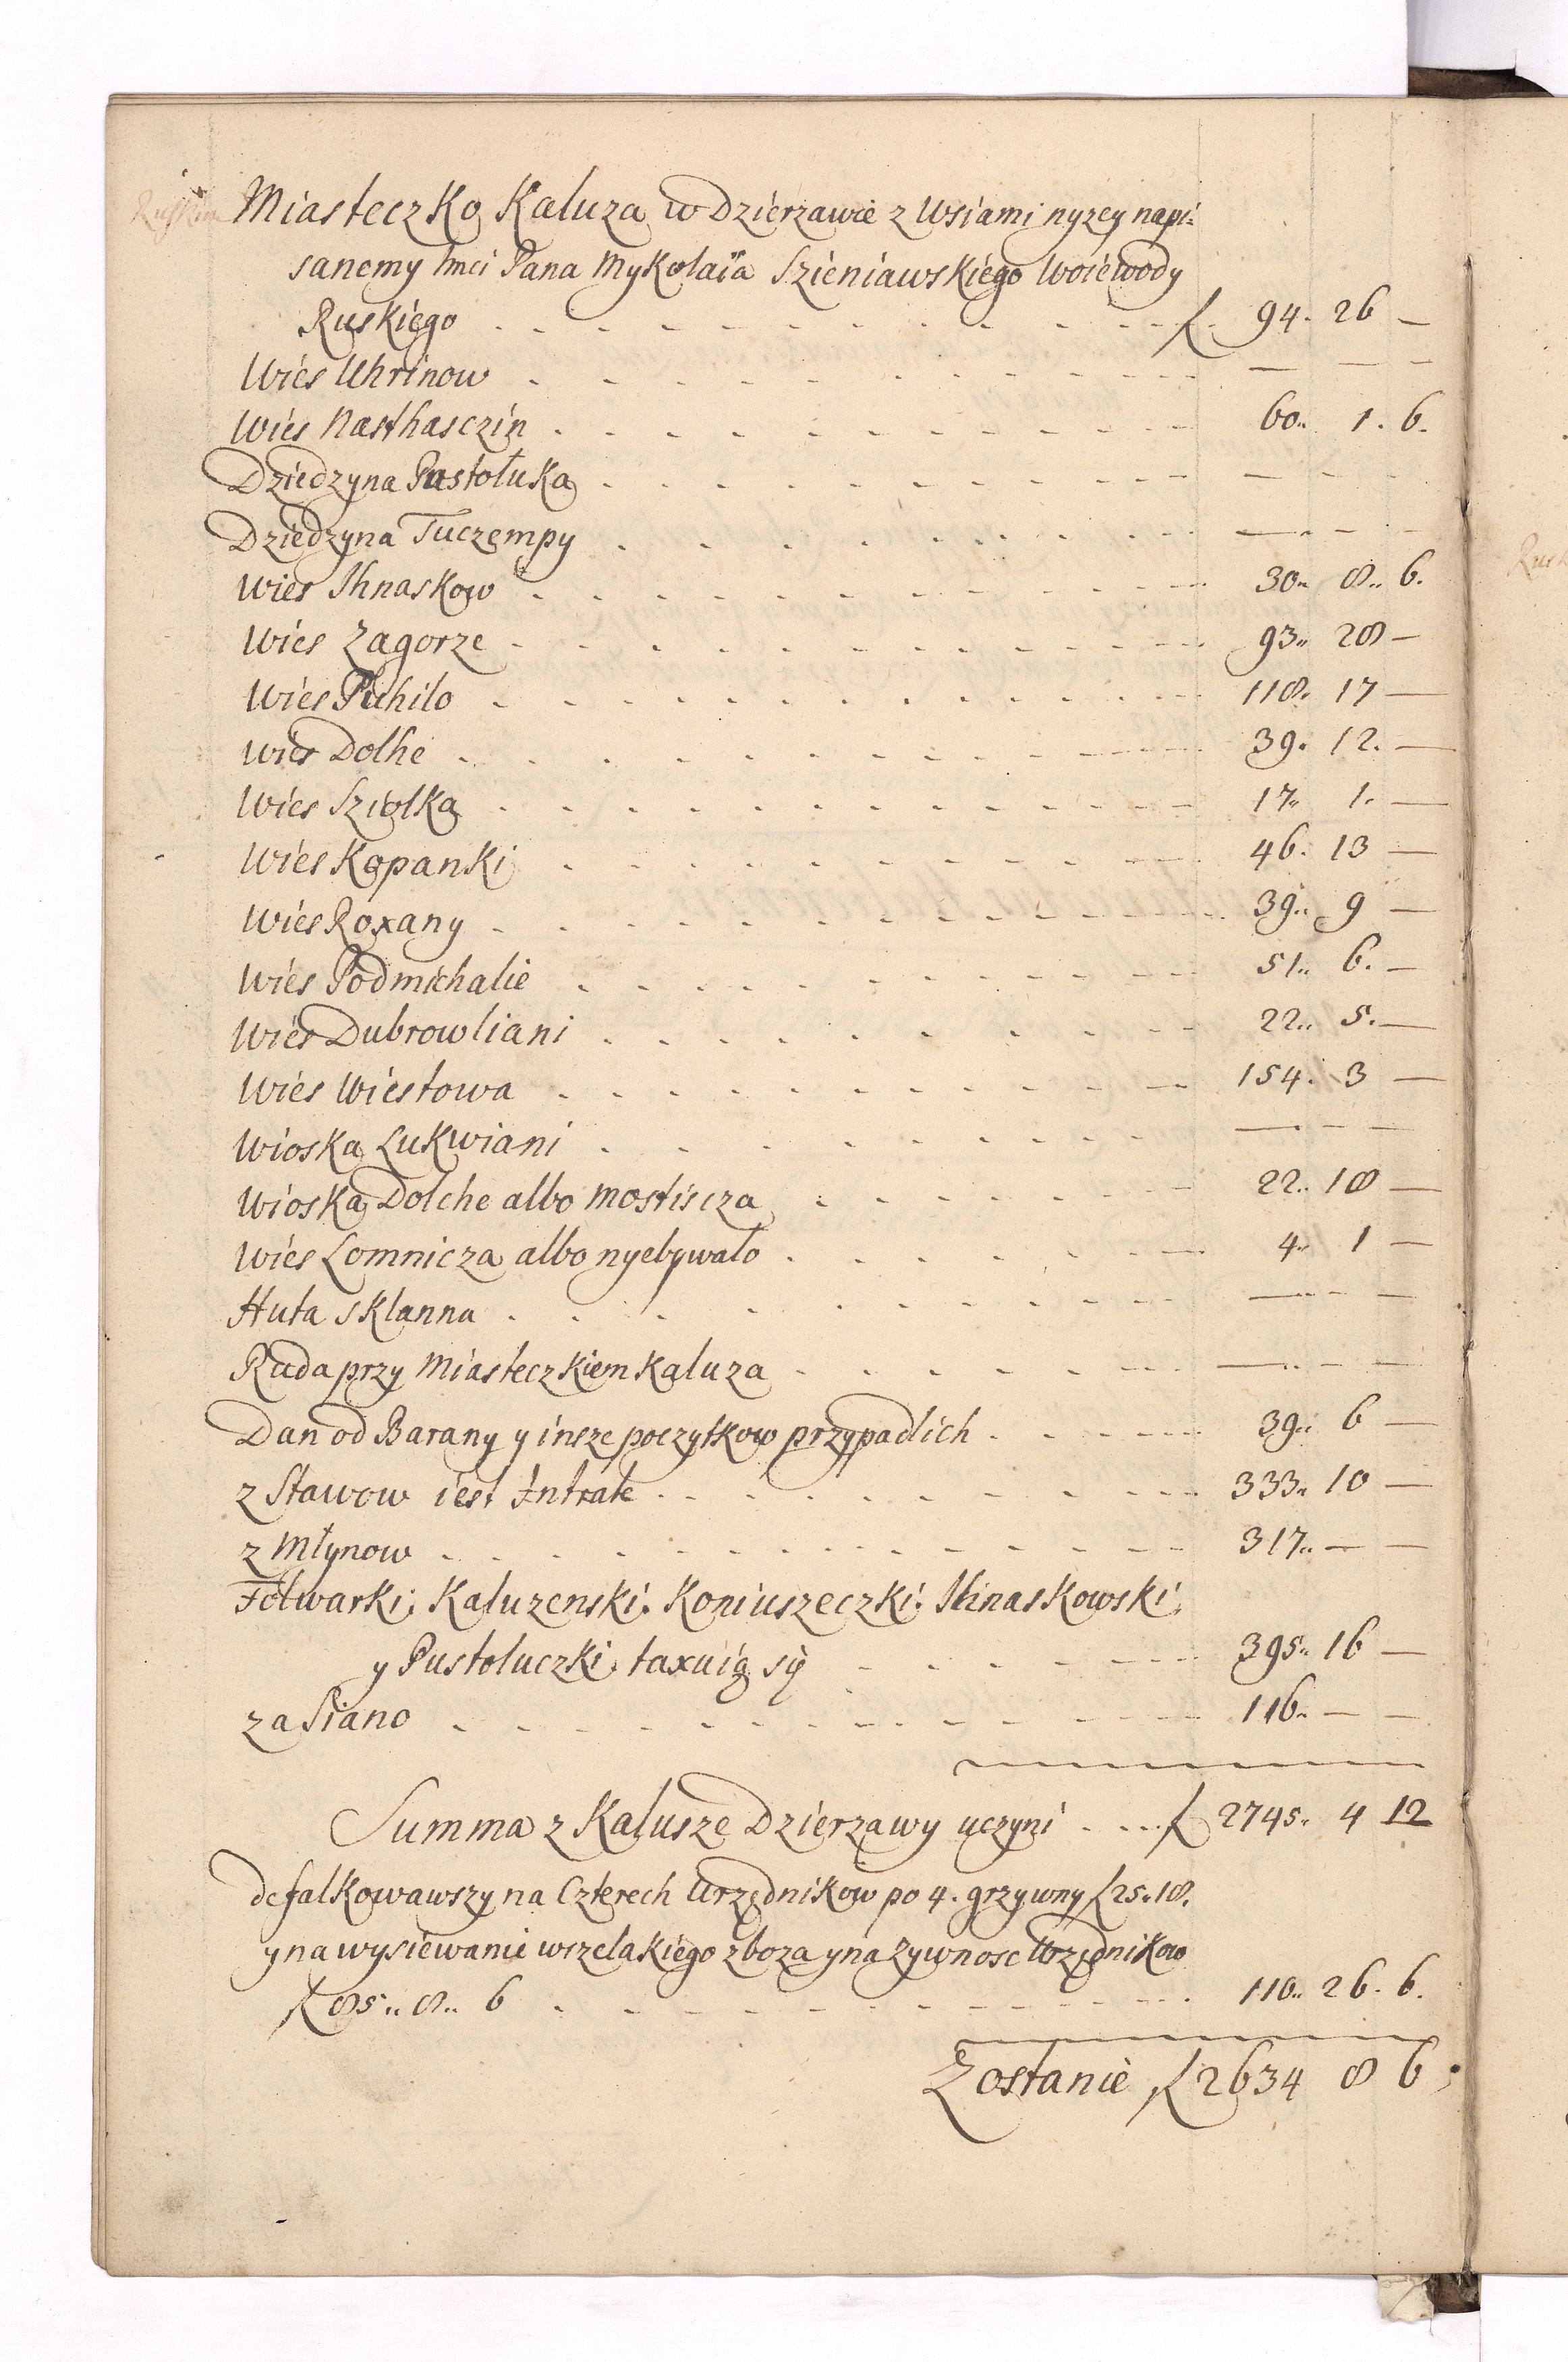 Miasteczko Kaluza w Dzierzawie z Wsiami nyzey napi=
sanemy Imci Pana Mykolaia Szieniawskiego Woiewody
Ruskiego . . . ƒ 94. 26 —
Wies Uhrinow . . . — — —
Wies Nasthasczin . . . 60.. 1. 6.
Dziedzyna Pustołuka . . . — — —
Dziedzyna Tuczempy . . . — — —
Wies Ihnaskow . . . 30.. 8.. 6.
Wies Zagorze . . . 93.. 28 —
Wies Puhilo . . . 118. 17 —
Wies Dolhe . . . 39. 12. —
Wies Sziolka . . . 17.. 1. —
Wies Kopanki . . . 46. 13 —
Wies Roxany . . . 39.. 9 —
Wies Podmichalie . . . 51.. 6. —
Wies Dubrowliani . . . 22.. 5. —
Wies Wiestowa . . . 154. 3 —
Wioska Lukwiani . . . — — —
Wioska Dolche albo Mostiscza . . . 22.. 18 —
Wies Lomnicza albo nyebywało . . . 4.. 1 —
Huta sklanna . . . — — —
Ruda przy Miasteczkiem Kaluza . . . — — —
Dan od Barany y insze poczytkow przypadlich . . . 39.. 6 —
z Stawow iest Intrate . . . 333.. 10 —
z Młynow . . . 317.. — —
Folwarki, Kaluzenski. Koniuszeczki. Ihnaskowski
y Pustoluczki, taxuią się . . . 395.. 16 —
za Siano . . . 116.. — —
Summa z Kalusze Dzierzawy uczyni . . . ƒ 2745. 4 12
defalkowawszy na Czterech Urzędnikow po 4. grzywny ƒ 25. 18.
y na wysiewanie wszelakiego zboza y na zywnosc Urzędnikow
ƒ 85.. 8.. 6 . . . 110.. 26. 6.
Zostanie ƒ 2634 8 6